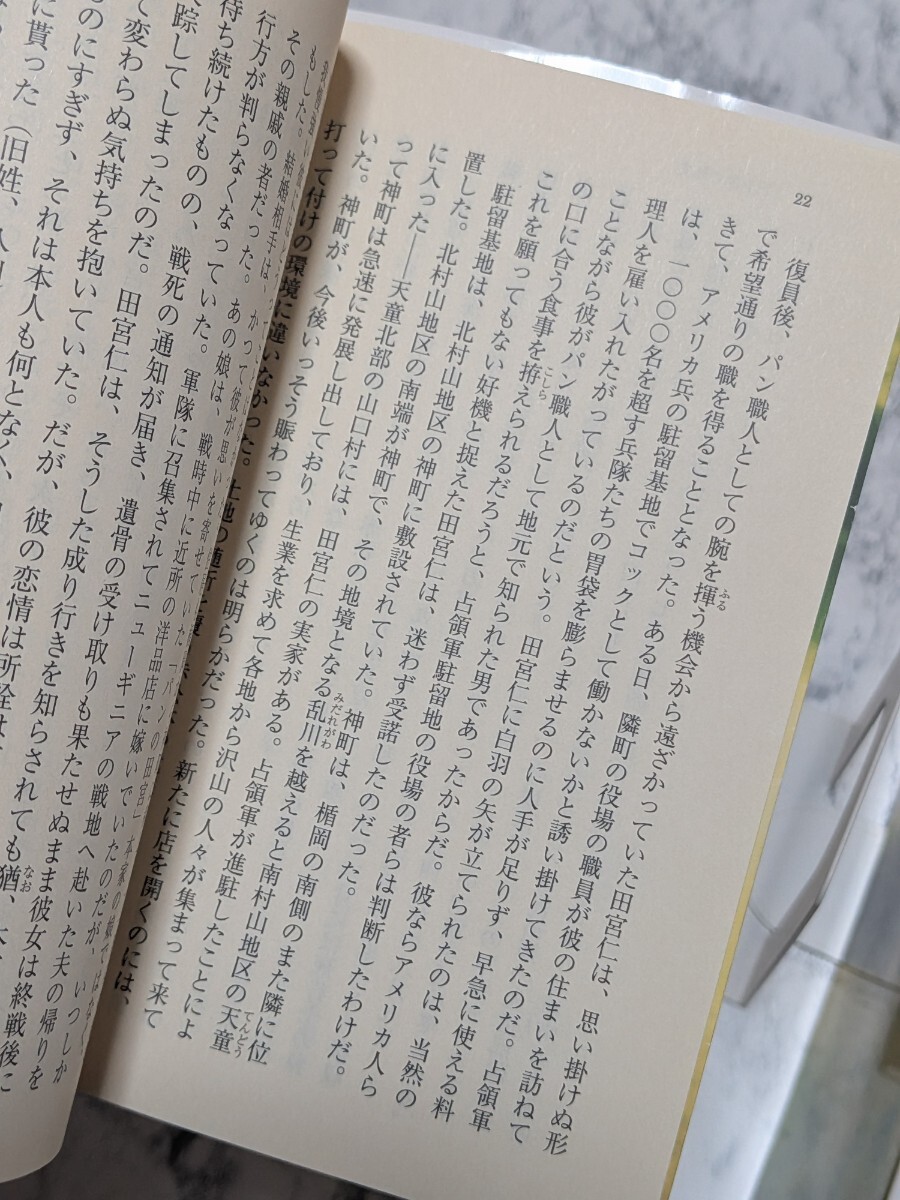 22
復員後、パン職人としての腕を揮う機会から遠ざかっていた田宮仁は、思い掛けぬ形
ふる
で希望通りの職を得ることとなった。ある日、隣町の役場の職員が彼の住まいを訪ねて
きて、アメリカ兵の駐留基地でコックとして働かないかと誘い掛けてきたのだ。占領軍
は、一〇〇〇名を超す兵隊たちの胃袋を膨らませるのに人手が足りず、早急に使える料
理人を雇い入れたがっているのだという。田宮仁に白羽の矢が立てられたのは、当然の
ことながら彼がパン職人として地元で知られた男であったからだ。彼ならアメリカ人ら
の口に合う食事を拵えられるだろうと、占領軍駐留地の役場の者らは判断したわけだ。
こしら
これを願ってもない好機と捉えた田宮仁は、迷わず受諾したのだった。
駐留基地は、北村山地区の神町に敷設されていた。神町は、楯岡の南側のまた隣に位
置した。北村山地区の南端が神町で、その地境となる乱川を越えると南村山地区の天童
みだれがわ
てんどう
に入った――天童北部の山口村には、田宮仁の実家がある。占領軍が進駐したことによ
って神町は急速に発展し出しており、生業を求めて各地から沢山の人々が集まって来て
いた。神町が、今後いっそう賑わってゆくのは明らかだった。新たに店を開くのには、
打って付けの環境に違いなかった。
もした。結婚相手は、
その親戚の者だった。かつて彼が思いを寄せていた「パンの田宮」本家の娘ではなく、
行方が判らなくなっていた。あの娘は、戦時中に近所の洋品店に嫁いでいたのだが、いつしか
待ち続けたものの、戦死の通知が届き、遺骨の受け取りも果たせぬまま彼女は終戦後に
軍隊に召集されてニューギニアの戦地へ赴いた夫の帰りを
踪してしまったのだ。田宮仁は、そうした成り行きを知らされても猶、
なお
変わらぬ気持ちを抱いていた。だが、彼の恋情は所詮は
ものにすぎず、それは本人も何となく
に貰った（旧姓、